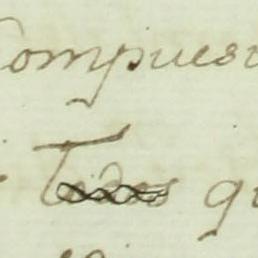 Compues
Todos qu